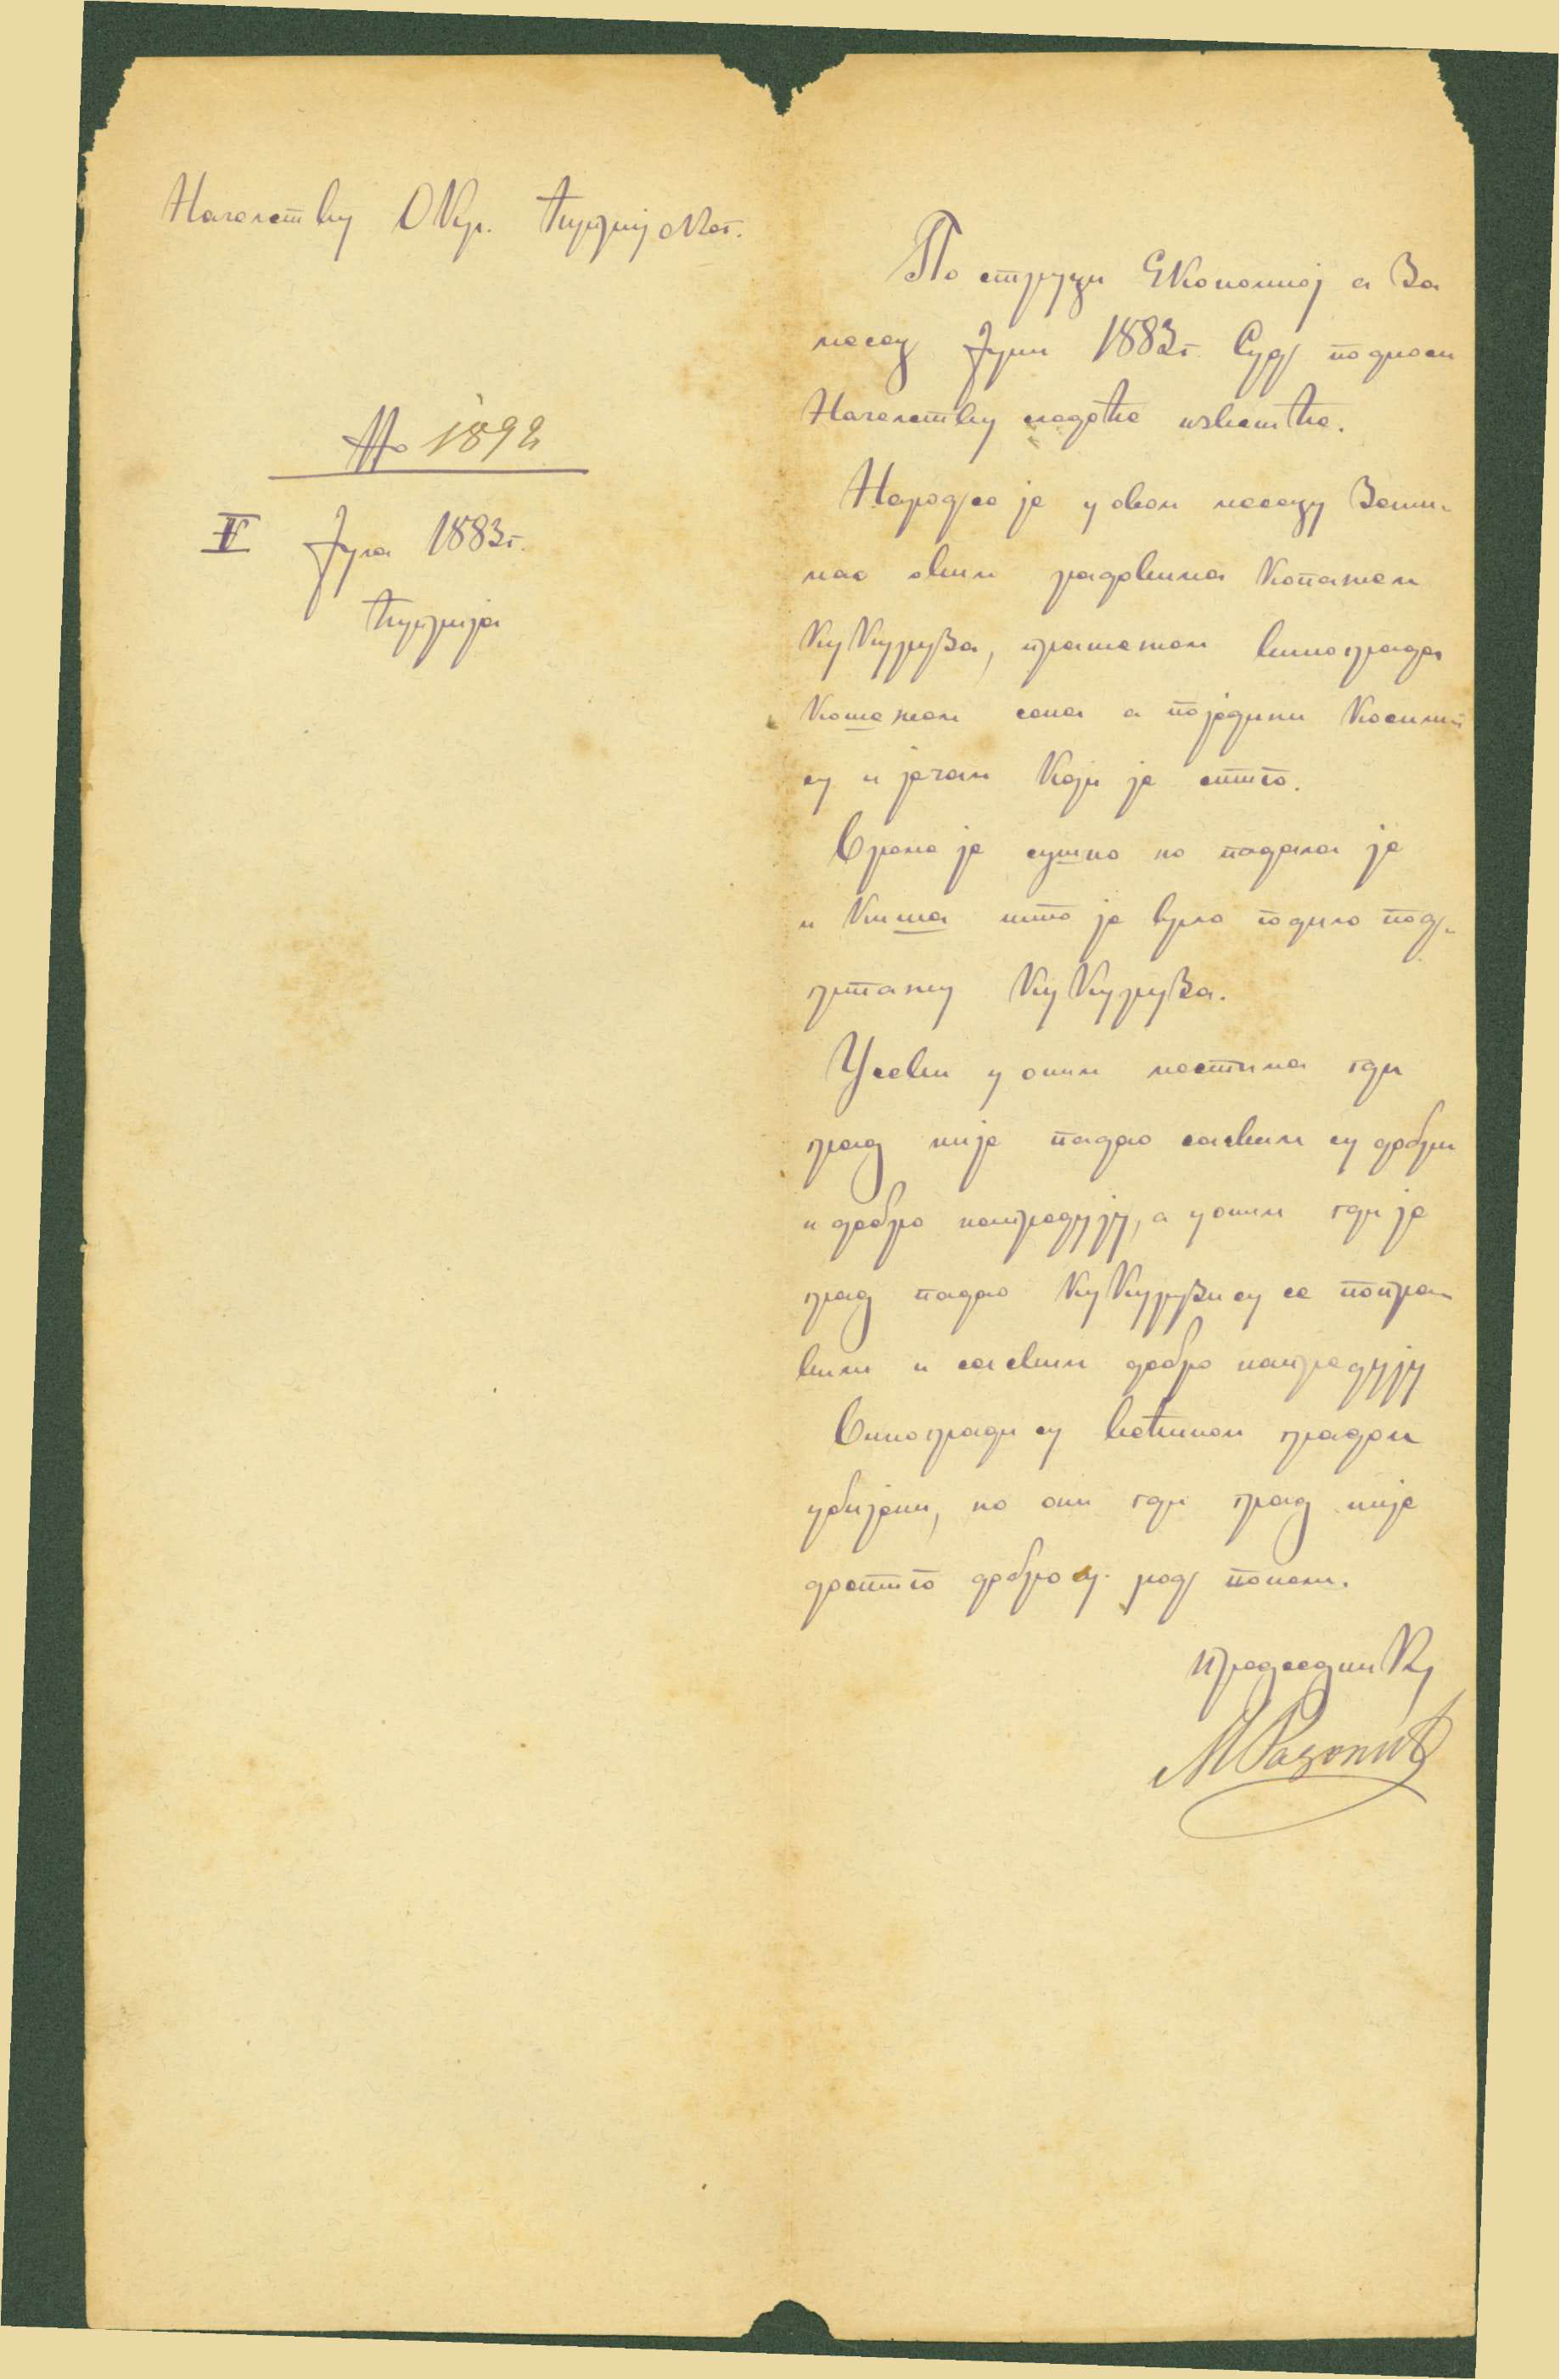 Началству Окр. ћупријског.
№ 1892
V Јула 1883г.
ћуприја
По струци Економној а За
месец Јуни 1883г. Суд подноси
Началству следеће извешће.
Народ се је у овом месецу Зани-
мао овим радовима Копањем
КуКуруЗа, прашењем винограда
Кошењем сена а поједини Косили
су и јечам Који је стиго.
Време је сушно но падала је
и Киша што је врло годило под-
гртању КуКуруЗа.
Усеви у оним местима где
град није падао сасвим су добри
и добро напредују, а у оним где је
град падао КуКуруЗи су се попра-
вили и сасвим добро напредују
Виногради су већином градом
убијени, но они где град није
достиго добро су род понели.
председниК,